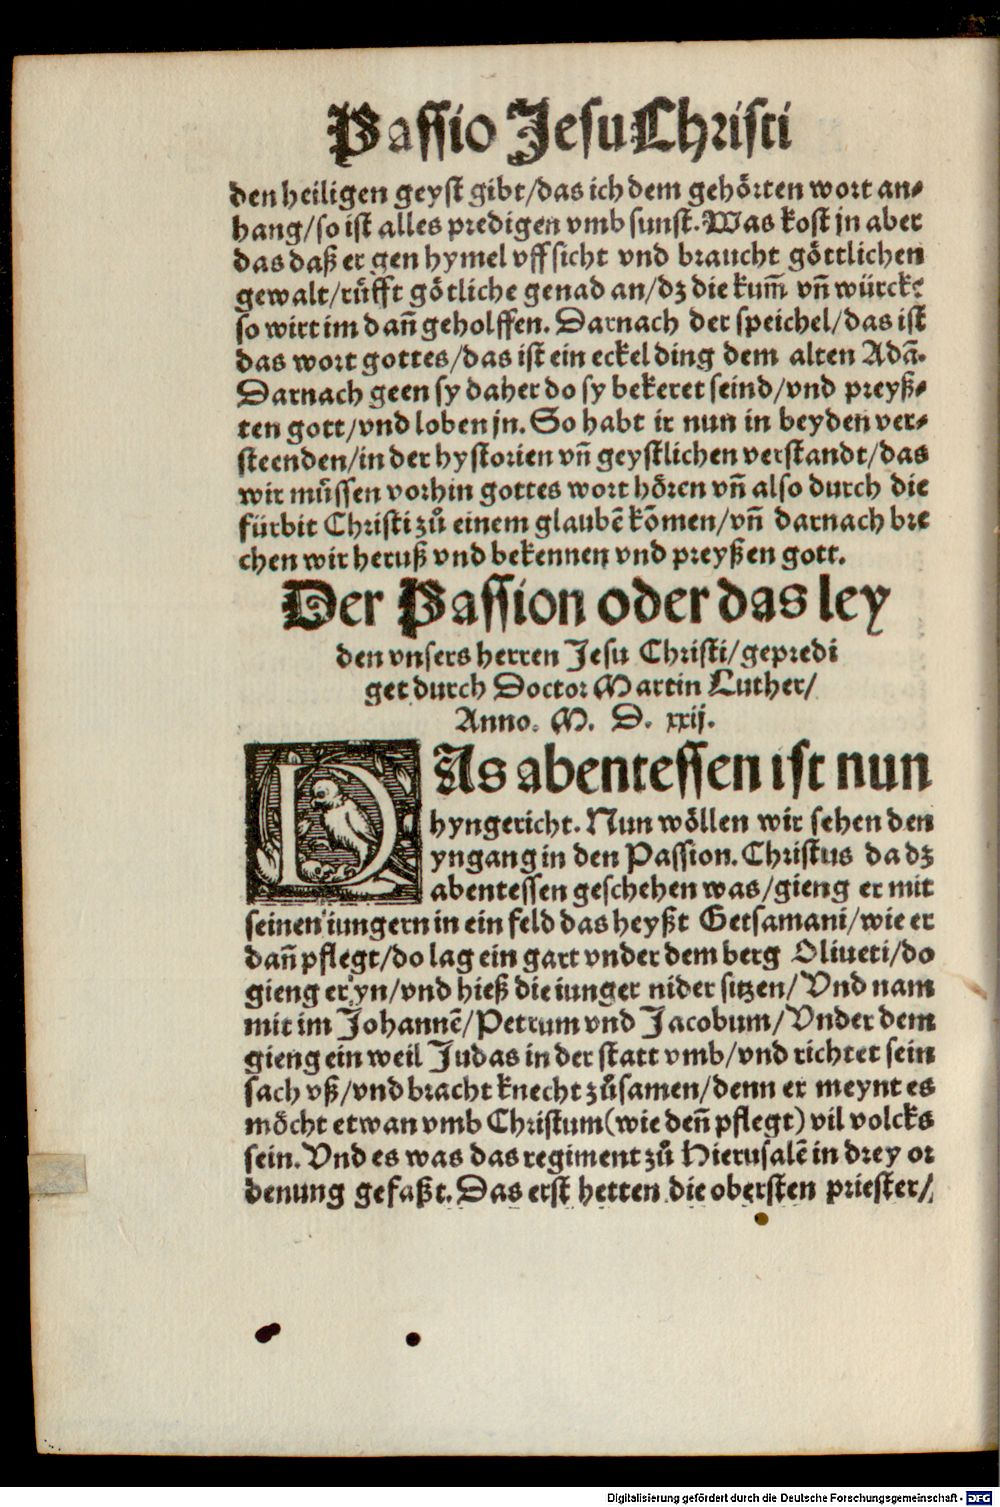 Passio Jesu Christi
den heiligen geyst gibt/das ich dem gehörten wort an⸗
hang/so ist alles predigen vmb sunst. Was kost jn aber
das daß er gen hymel vff sicht vnd braucht göttlichen
gewalt/růfft götliche genad an/dz die kum̃ vn̄ würcke
so wirt im dan̄ geholffen. Darnach der speichel/das ist
das wort gottes/das ist ein eckel ding dem alten Adā.
Darnach geen sy daher do sy bekeret seind/vnd preyß⸗
ten gott/vnd loben jn. So habt ir nun in beyden ver⸗
steenden/in der hystorien vn̄ geystlichen verstandt/das
wir müssen vorhin gottes wort hören vn̄ also durch die
fürbit Christi zů einem glaubē kōmen/vn̄ darnach bre
chen wir heruß vnd bekennen vnd preyßen gott.
Der Passion oder das ley
den vnsers herren Jesu Christi/gepredi
get durch Doctor Martin Luther/
Anno. M. D. xxij.
DAs abentessen ist nun
hyngericht. Nun wöllen wir sehen den
yngang in den Passion. Christus da dz
abentessen geschehen was/gieng er mit
seinen iungern in ein feld das heyßt Getsamani/wie er
dan̄ pflegt/do lag ein gart vnder dem berg Oliueti/do
gieng er yn/vnd hieß die iunger nider sitzen/Vnd nam
mit im Johannē/Petrum vnd Jacobum/Vnder dem
gieng ein weil Judas in der statt vmb/vnd richtet sein
sach vß/vnd bracht knecht zůsamen/denn er meynt es
möcht etwan vmb Christum(wie den̄ pflegt) vil volcks
sein. Vnd es was das regiment zů Hierusalē in drey or
denung gefaßt. Das erst hetten die obersten priester/
Digitalisierung gefördert durch die Deutsche Forschungsgemeinschaft - DFG